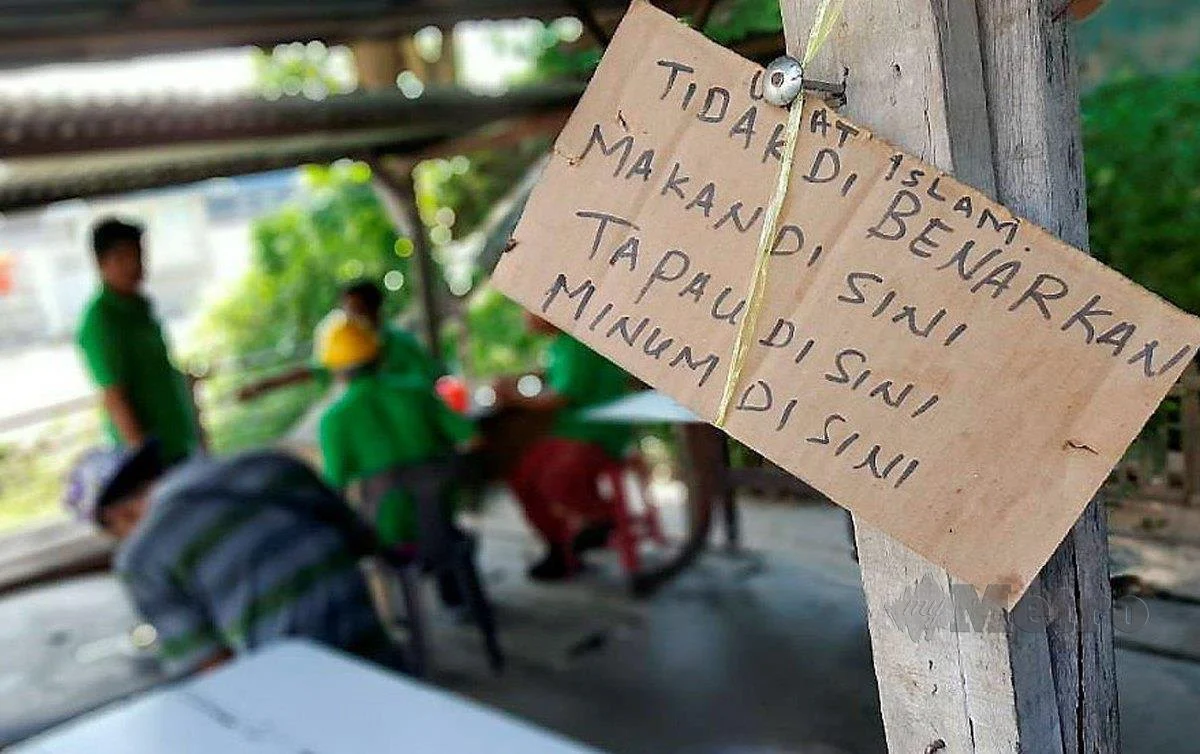 U AT ISLAM.
TIDAK DI BENARKAN
MAKAN DI SINI
TAPAU DI SINI
MINUM DI SINI
myMetro